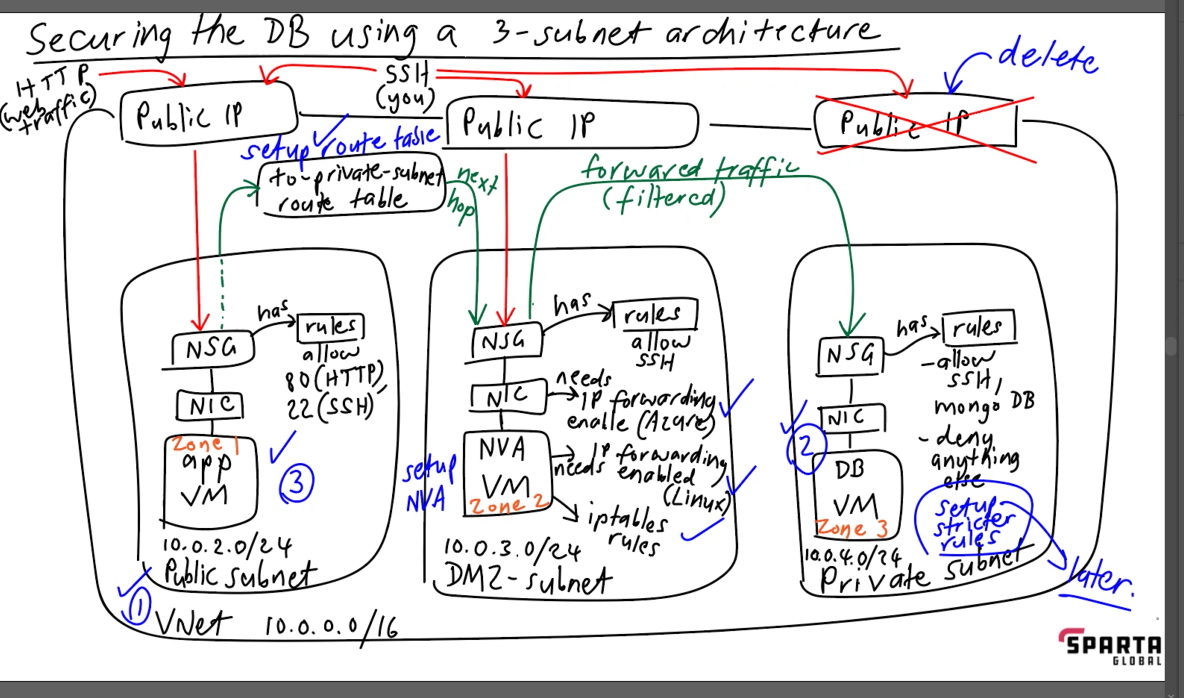 Securing the DB using a 3-subnet architecture
HTTP
(web
traffic)
SSH
(you)
delete
Public IP
Public IP
Public IP
setup route table
to-private-subnet
route table
next
hop
forwared traffic
(filtered)
NSG
has
rules
allow
80(HTTP),
22(SSH)
NIC
Zone 1
app
VM
3
10.0.2.0/24
Public subnet
1
NSG
has
rules
allow
SSH
NIC
needs
IP forwarding
enable (Azure)
setup
NVA
NVA
VM
Zone 2
needs
IP forwarding
enabled
(Linux)
iptables
rules
10.0.3.0/24
DMZ-subnet
NSG
has
rules
-allow
SSH,
mongo DB
- deny
anything
else
NIC
2
DB
VM
Zone 3
setup
stricter
rules
later.
10.0.4.0/24
Private subnet
VNet 10.0.0.0/16
SPARTA
GLOBAL